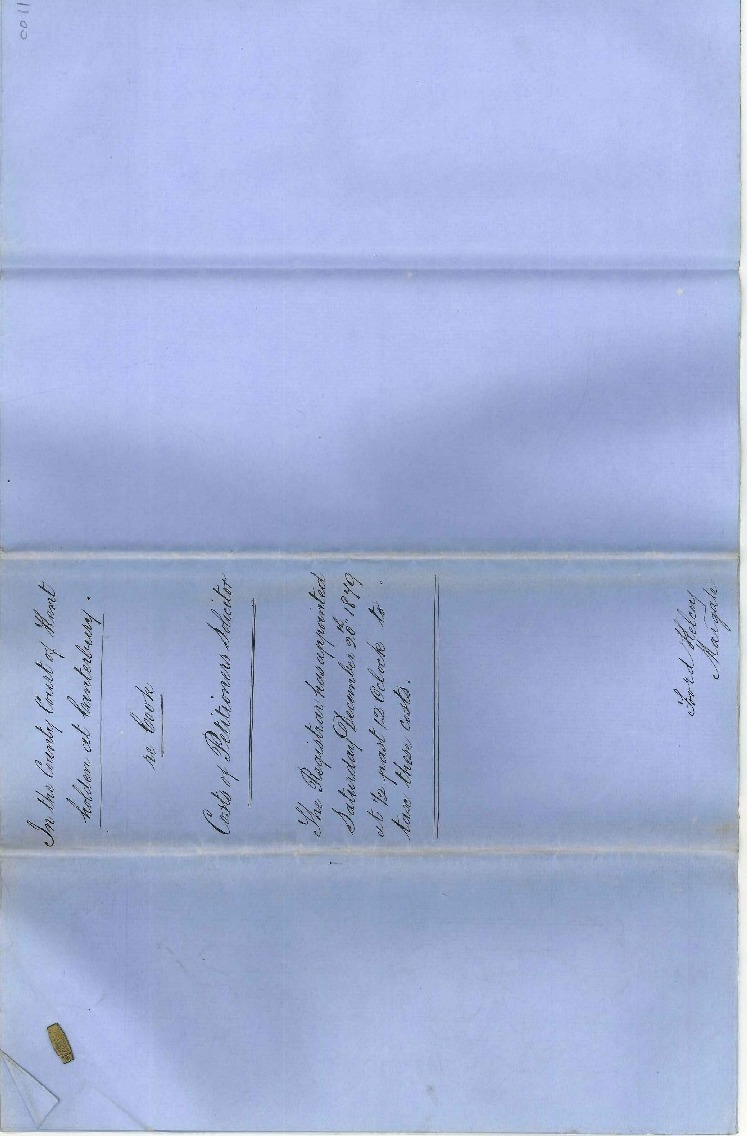 In the County Court of Kent
holden at Canterbury.
re Cook
Costs of Petitioners Solicitor
The Registrar has appointed
Saturday December 20th 1879
at ½ past 12 Oclock to
tax these costs.
Ford Kelcey
Margate